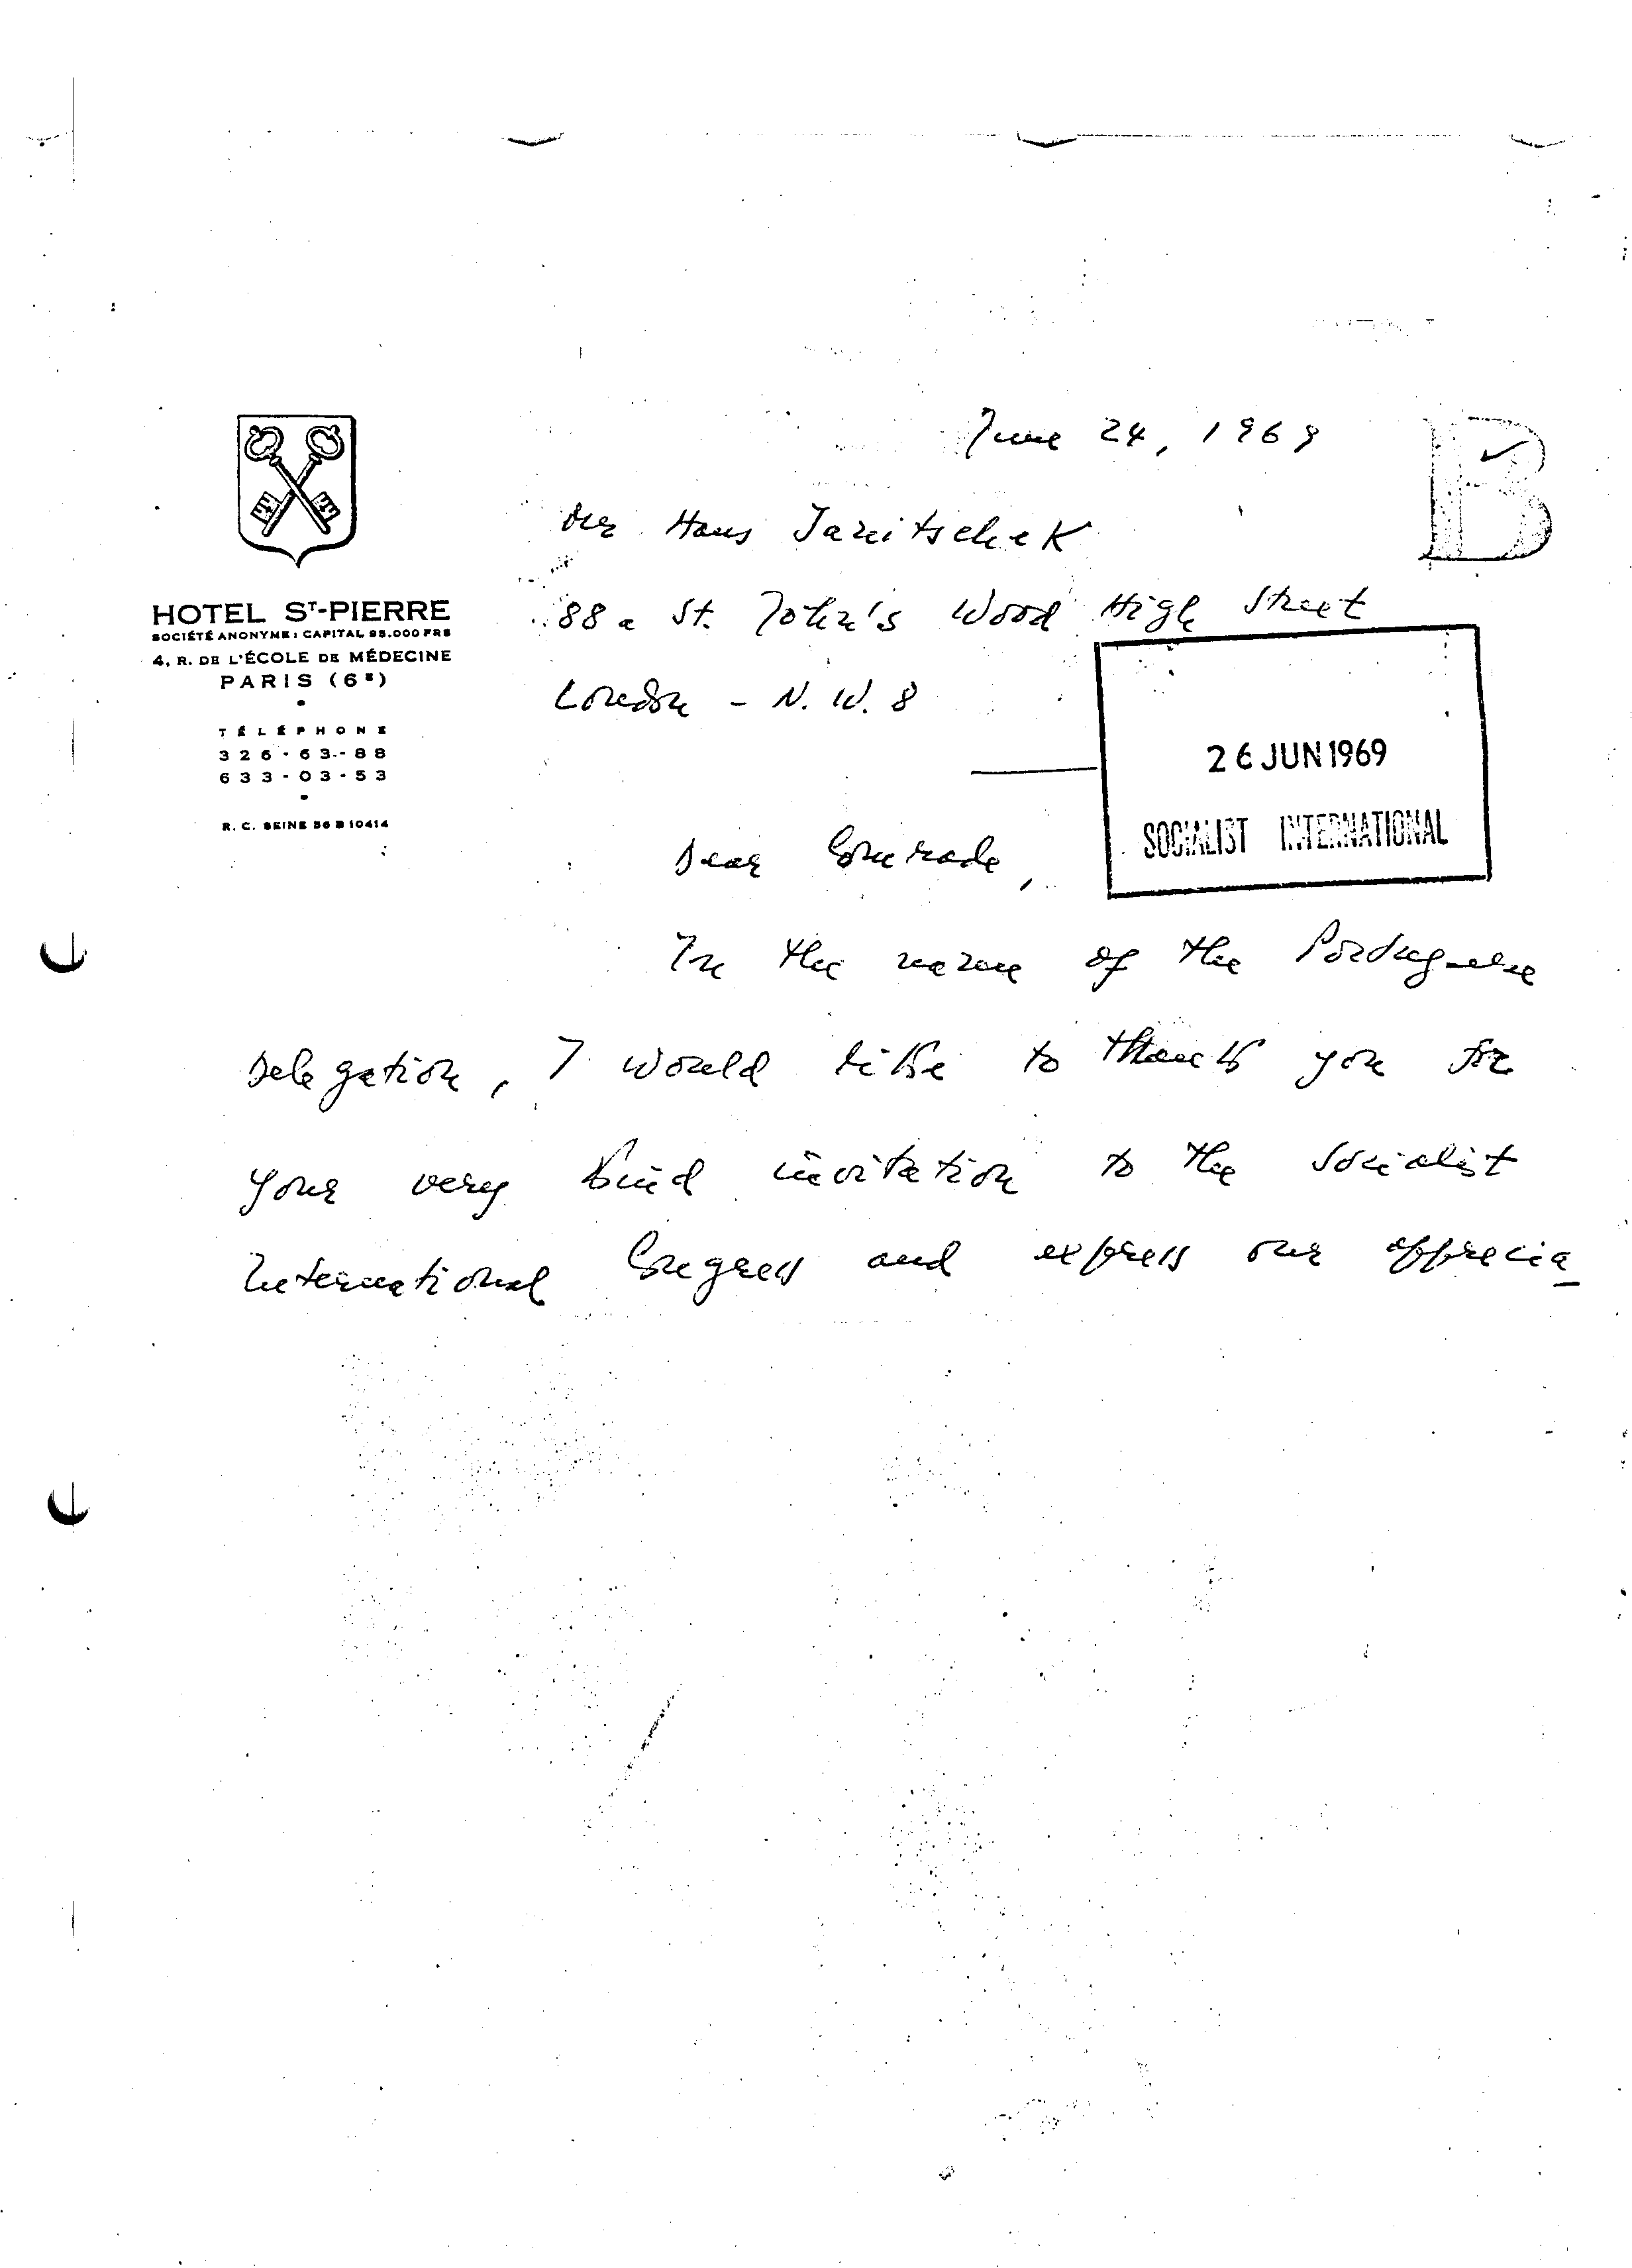 June 24, 1969
Mr Hans Janitschek
88 a St. John's Wood High Street
London - N. W. 8
HOTEL ST-PIERRE
SOCIÉTÉ ANONYME: CAPITAL 95.000 FRS
4, R. DE L'ÉCOLE DE MÉDECINE
PARIS (6E)
TÉLÉPHONE
326-63-88
633-03-53
R. C. SEINE 56 B 10414
B
26 JUN 1969
SOCIALIST INTERNATIONAL
Dear Comrade,
In the name of the Portuguese
Delegation, I would like to thank you for
your very kind invitation to the Socialist
International Congress and express our apprecia_